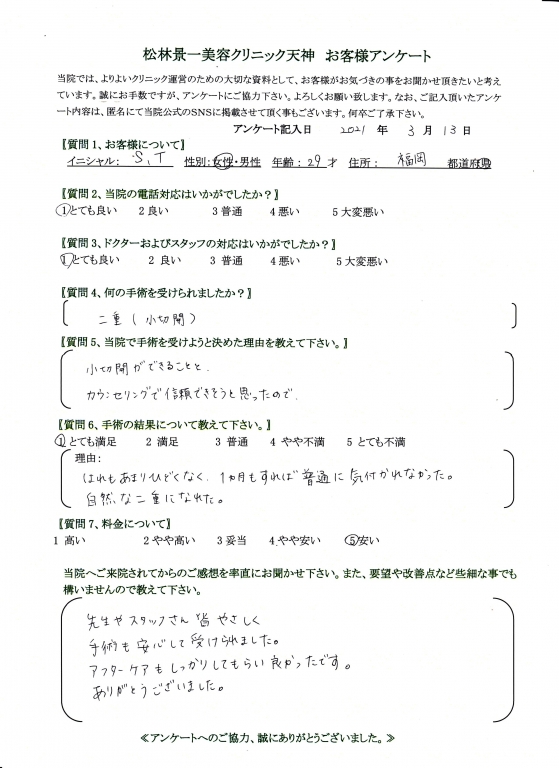 松林景一美容クリニック天神 お客様アンケート
当院では、よりよいクリニック運営のための大切な資料として、お客様がお気づきの事をお聞かせ頂きたいと考え
ています。誠にお手数ですが、アンケートにご協力下さい。よろしくお願い致します。なお、ご記入頂いたアンケ
ート内容は、匿名にて当院公式のSNSに掲載させて頂く事もございます。何卒ご了承下さい。
アンケート記入日 2021 年 3 月 13 日
〖質問1、お客様について〗
イニシャル： S、T 性別：女性・男性 年齢：29才 住所： 福岡 都道府県
〖質問2、当院の電話対応はいかがでしたか？〗
①とても良い 2 良い 3 普通 4 悪い 5 大変悪い
〖質問3、ドクターおよびスタッフの対応はいかがでしたか？〗
①とても良い 2 良い 3 普通 4 悪い 5 大変悪い
〖質問4、何の手術を受けられましたか？〗
二重(小切開)
〖質問5、当院で手術を受けようと決めた理由を教えて下さい。〗
小切開ができることと、
カウンセリングで信頼できそうと思ったので、
〖質問6、手術の結果について教えて下さい。〗
①とても満足 2 満足 3 普通 4 やや不満 5 とても不満
理由：
はれもあまりひどくなく、1ヵ月もすれば普通に気付かれなかった。
自然な二重になれた。
〖質問7、料金について〗
1 高い 2 やや高い 3 妥当 4 やや安い ⑤安い
当院へご来院されてからのご感想を率直にお聞かせ下さい。また、要望や改善点など些細な事でも
構いませんので教えて下さい。
先生やスタッフさん皆やさしく
手術も安心して受けられました。
アフターケアもしっかりしてもらい良かったです。
ありがとうございました。
≪アンケートへのご協力、誠にありがとうございました。≫